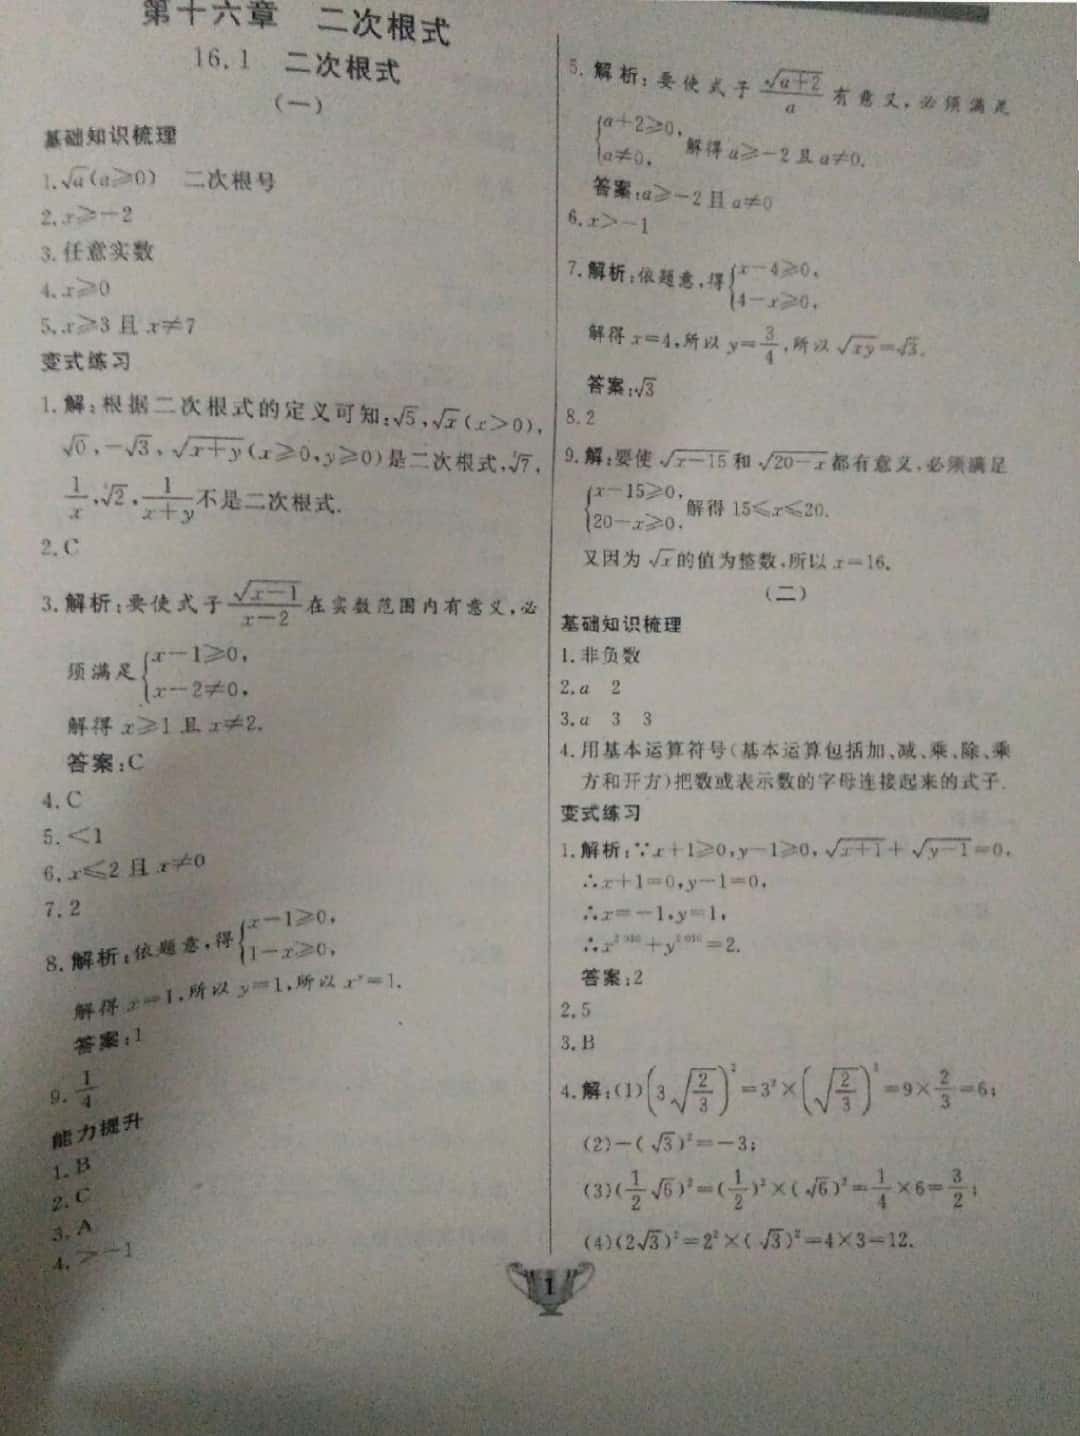 第十六章 二次根式
16.1 二次根式
(一)
基础知识梳理
1.√a(a≥0) 二次根号
2.x≥-2
3.任意实数
4.x≥0
5.x≥3且x≠7
变式练习
1.解:根据二次根式的定义可知:√5,√x(x>0),
√0,-√3,√(x+y)(x≥0,y≥0)是二次根式,∛7,
1/x,√2,1/(x+y)不是二次根式.
2.C
3.解析:要使式子√(x-1)/(x-2)在实数范围内有意义,必
须满足{x-1≥0,
x-2≠0,
解得x≥1且x≠2.
答案:C
4.C
5.<1
6.x≤2且x≠0
7.2
8.解析:依题意,得{x-1≥0,
1-x≥0,
解得x=1,所以y=1,所以xʸ=1.
答案:1
9.1/4
能力提升
1.B
2.C
3.A
4.>-1
5.解析:要使式子√(a+2)/a有意义,必须满足
{a+2≥0,
a≠0, 解得a≥-2且a≠0.
答案:a≥-2且a≠0
6.x>-1
7.解析:依题意,得{x-4≥0,
4-x≥0,
解得x=4,所以y=3/4,所以√(xy)=√3.
答案:√3
8.2
9.解:要使√(x-15)和√(20-x)都有意义,必须满足
{x-15≥0,
20-x≥0, 解得15≤x≤20.
又因为√x的值为整数,所以x=16.
(二)
基础知识梳理
1.非负数
2.a 2
3.a 3 3
4.用基本运算符号(基本运算包括加、减、乘、除、乘
方和开方)把数或表示数的字母连接起来的式子.
变式练习
1.解析:∵x+1≥0,y-1≥0,√(x+1)+√(y-1)=0,
∴x+1=0,y-1=0,
∴x=-1,y=1,
∴x²⁰¹⁶+y²⁰¹⁶=2.
答案:2
2.5
3.B
4.解:(1)(3√(2/3))²=3²×(√(2/3))²=9×2/3=6;
(2)-(√3)²=-3;
(3)(1/2√6)²=(1/2)²×(√6)²=1/4×6=3/2;
(4)(2√3)²=2²×(√3)²=4×3=12.
1